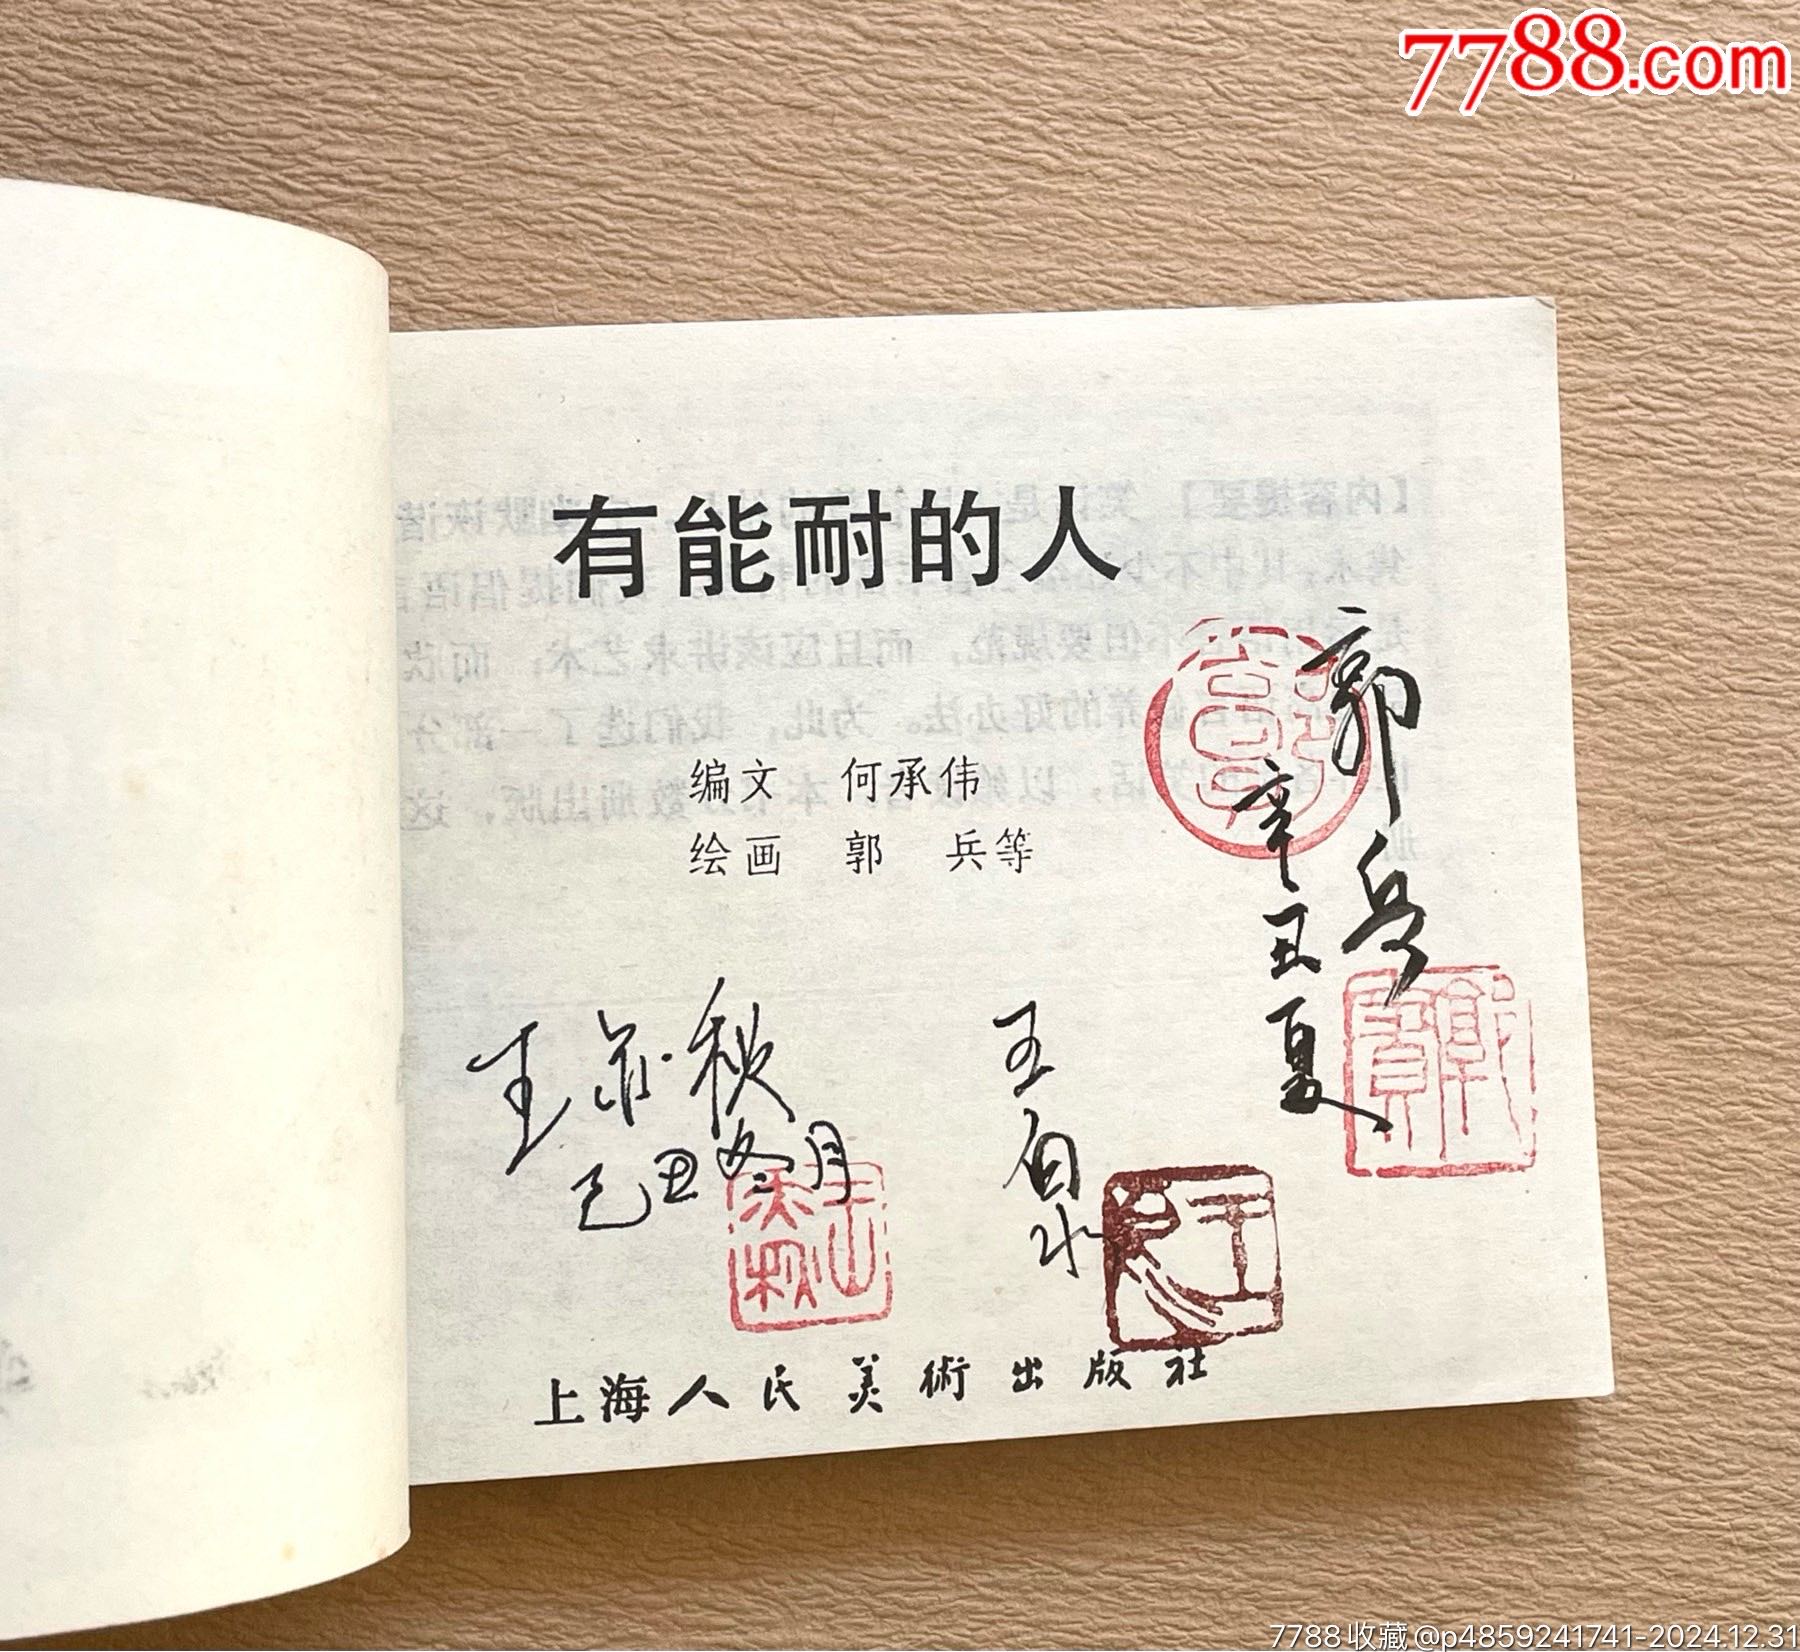 7788.com
有能耐的人
编文 何承伟
绘画 郭 兵等
郭兵
辛丑夏
王亦秋
己丑冬月
王白水
上海人民美術出版社
7788收藏@p4859241741-2024.12.31